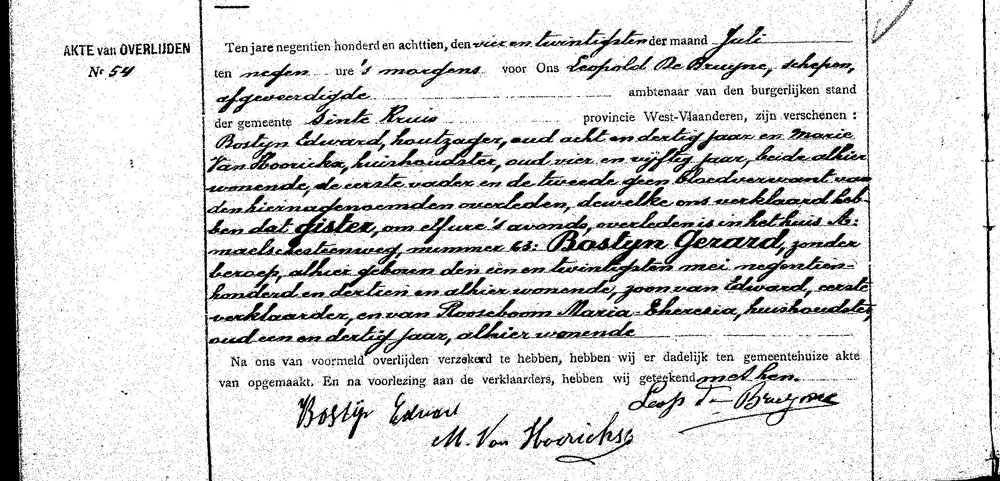 AKTE van OVERLIJDEN
Nr 54
Ten jare negentien honderd en achttien, den vier en twintigsten der maand Juli
ten negen ure 's morgens voor Ons Leopold De Bruyne, schepen,
afgeveerdigde ambtenaar van den burgerlijken stand
der gemeente Sinte Kruis provincie West-Vlaanderen, zijn verschenen :
Bostyn Edward, houtzager, oud acht en dertig jaar en Marie
Van Hoorickx, huishoudster, oud vier en vijftig jaar, beide alhier
wonende, de eerste vader en de tweede geen bloedverwant van
den hiernagenoemden overleden, dewelke ons verklaard heb-
ben dat gister, om elf ure 's avonds, overleden is in het huis A-
maelschesteenweg, nummer 63: Bostyn Gerard, zonder
beroep, alhier geboren den een en twintigsten mei negentien-
honderd en dertien en alhier wonende, zoon van Edward, eerste
verklaarder, en van Rooseboom Maria-Theresia, huishoudster,
oud een en dertig jaar, alhier wonende
Na ons van voormeld overlijden verzekerd te hebben, hebben wij er dadelijk ten gemeentehuize akte
van opgemaakt. En na voorlezing aan de verklaarders, hebben wij geteekend met hen.
Leop De Bruyne
Bostijn Edward
M. Van Hoorickx